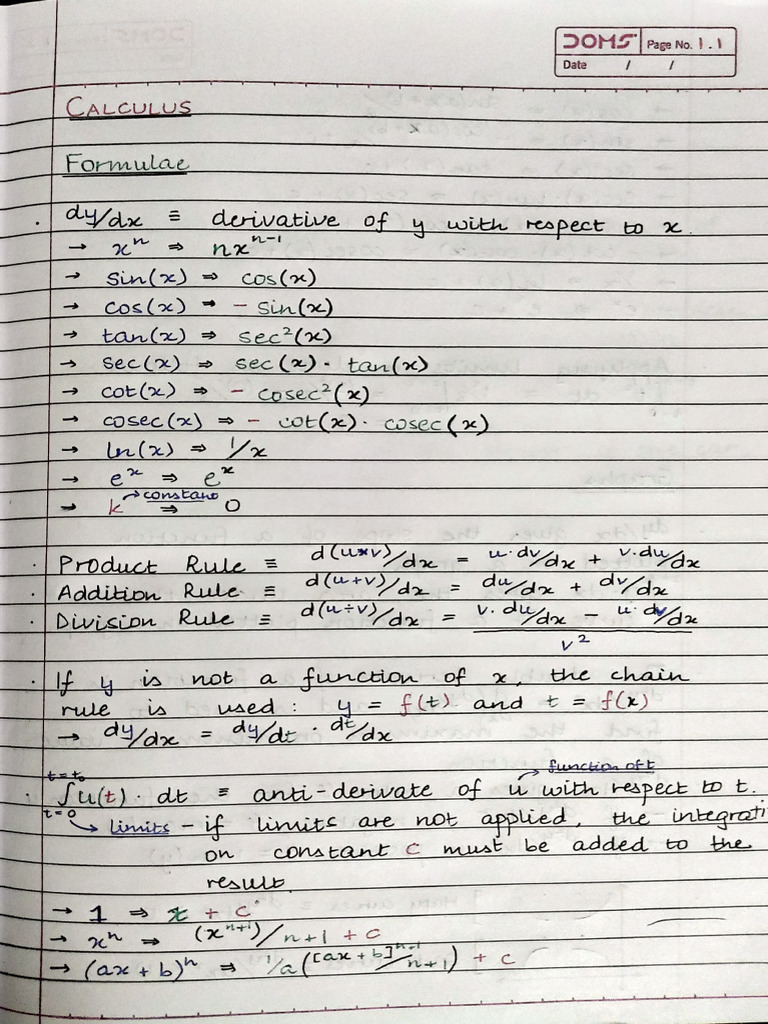 DOMS Page No. 1.1
Date / /
CALCULUS
Formulae
· dy/dx ≡ derivative of y with respect to x.
→ xⁿ ⇒ nxⁿ⁻¹
→ sin(x) ⇒ cos(x)
→ cos(x) → - sin(x)
→ tan(x) ⇒ sec²(x)
→ sec(x) ⇒ sec(x) · tan(x)
→ cot(x) ⇒ - cosec²(x)
→ cosec(x) ⇒ - cot(x) · cosec(x)
→ ln(x) ⇒ 1/x
→ eˣ ⇒ eˣ
→ k → constant ⇒ 0
· Product Rule ≡ d(u*v)/dx = u·dv/dx + v·du/dx
· Addition Rule ≡ d(u+v)/dx = du/dx + dv/dx
· Division Rule ≡ d(u÷v)/dx = v·du/dx - u·dv/dx
v²
· If y is not a function of x, the chain
rule is used : y = f(t) and t = f(x)
→ dy/dx = dy/dt · dt/dx
t=t₀ → function of t
· ∫u(t) · dt ≡ anti-derivate of u with respect to t.
t=0 → limits - if limits are not applied, the integrati
on constant c must be added to the
result.
→ 1 ⇒ x + c
→ xⁿ ⇒ (xⁿ⁺¹)/n+1 + c
→ (ax + b)ⁿ ⇒ 1/a([ax + b]ⁿ⁺¹/n+1) + c